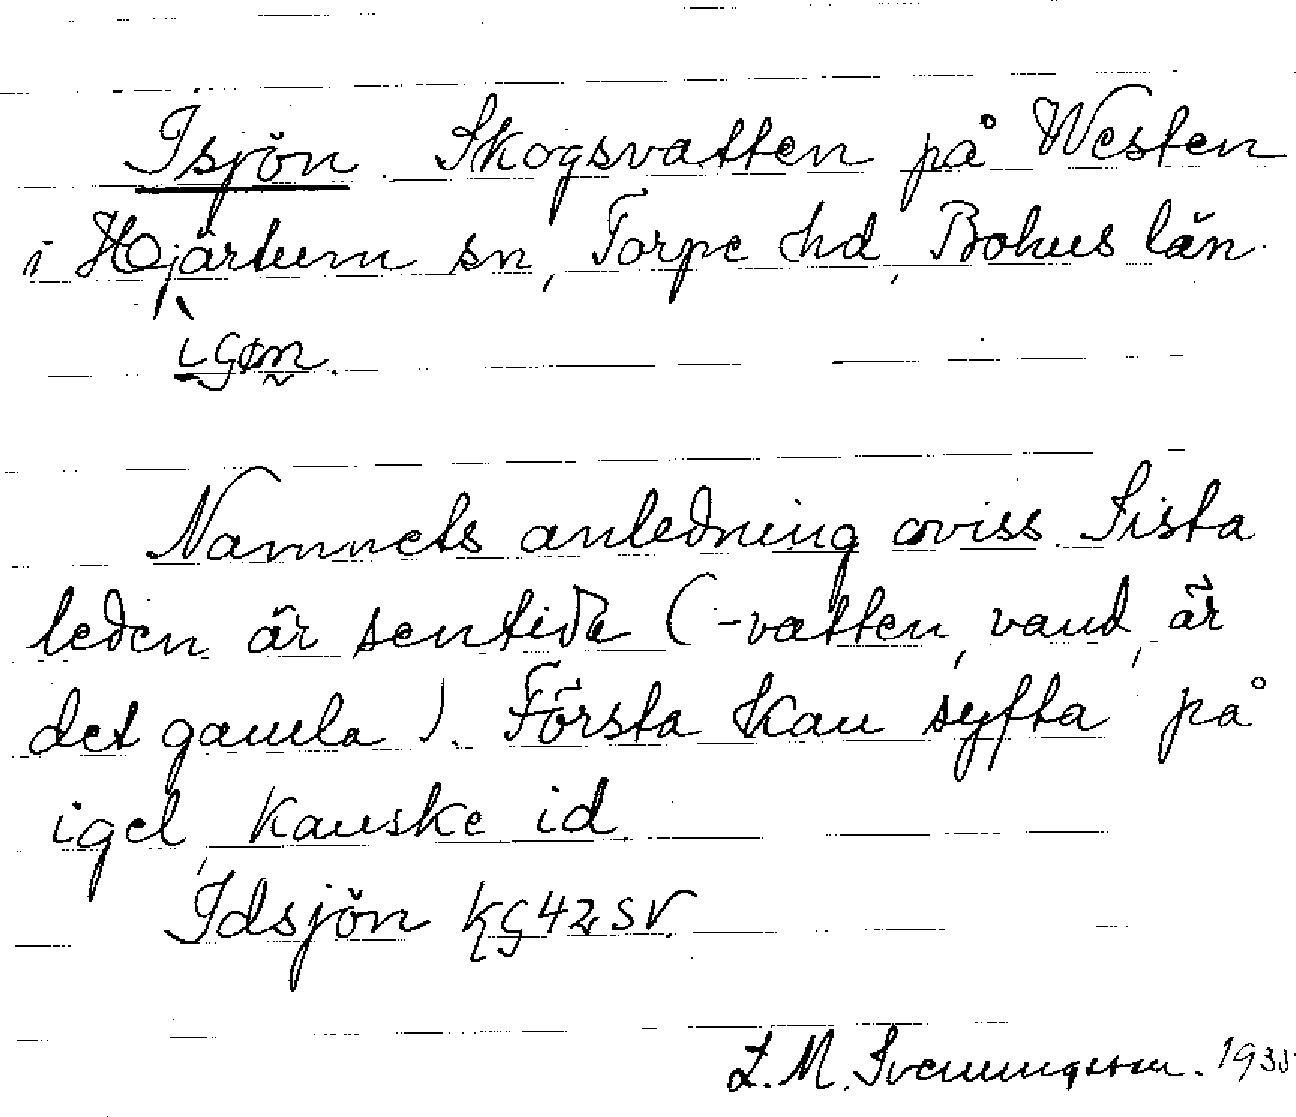 Isjön. Skogsvatten på Westen
i Hjärtum sn, Torpe hd, Bohus län.
Namnets anledning oviss. Sista
leden är sentida (-vatten, vand, är
det gamla). Första kan syfta på
igel, kanske id.
Idsjön
L. M. Svenungsson. 1935